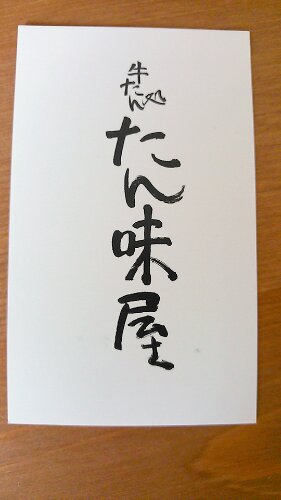 牛たん処
たん味屋